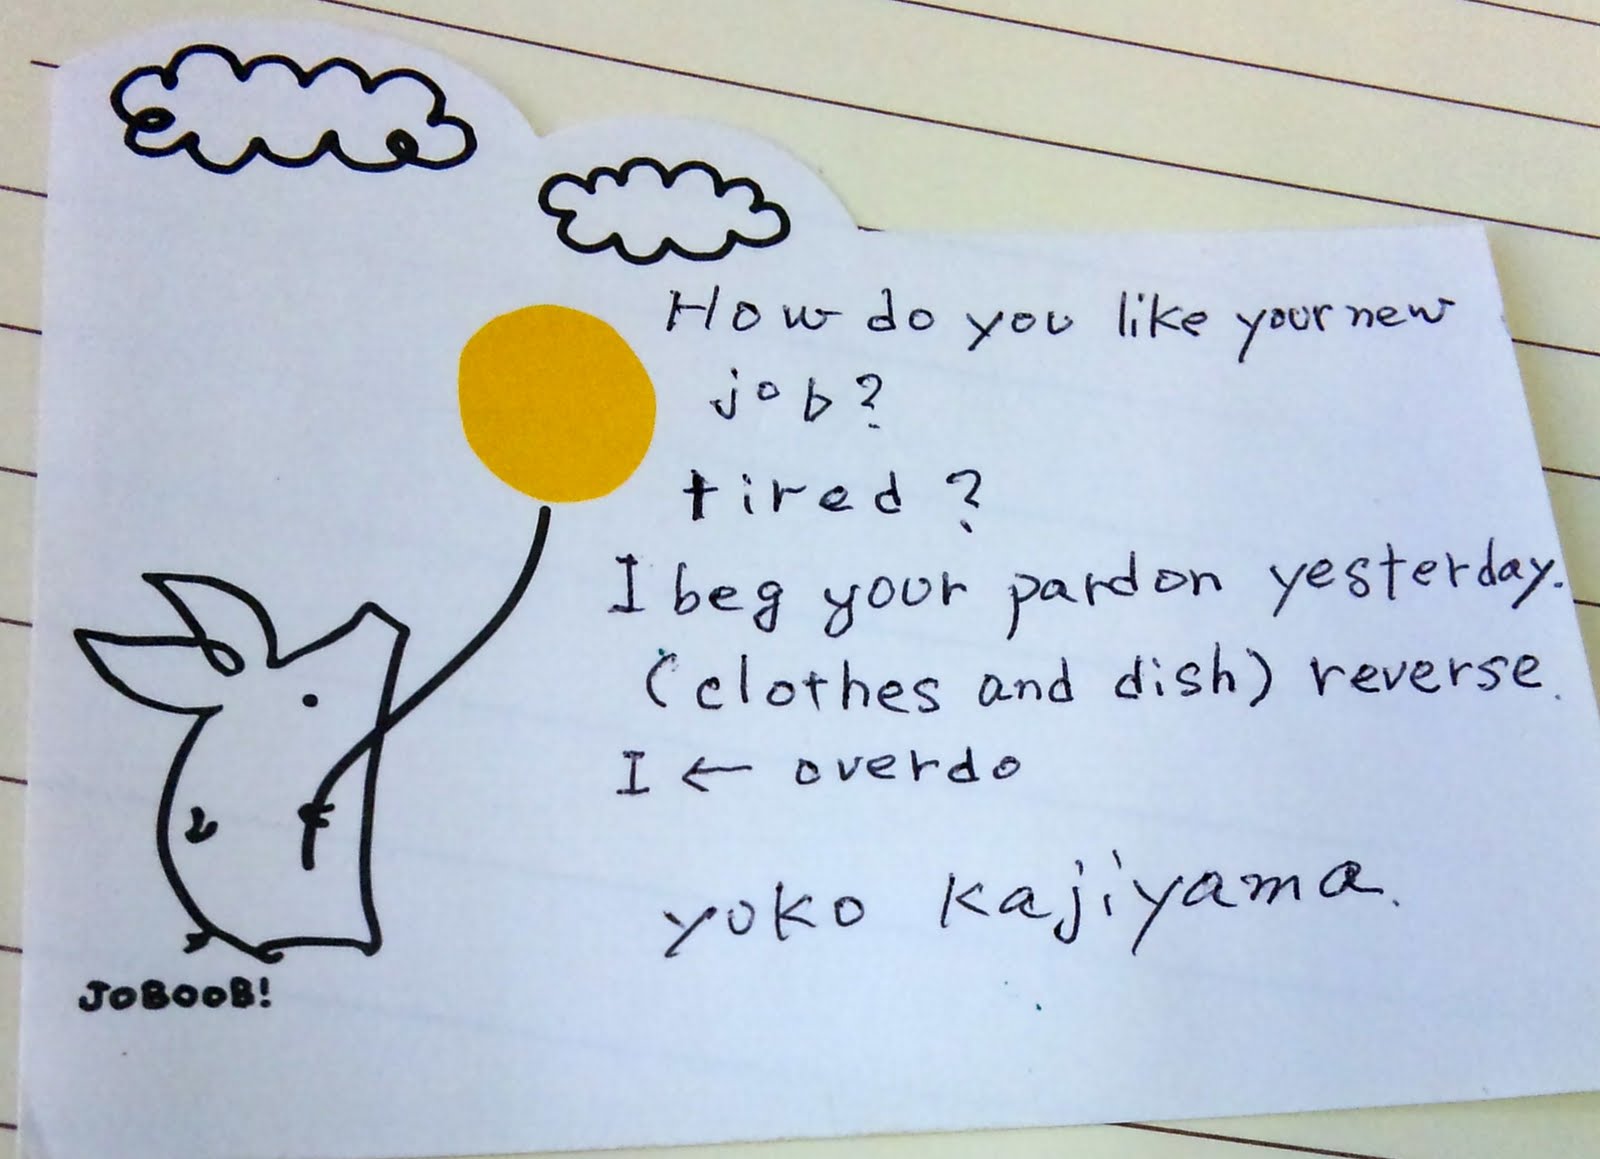 How do you like your new
job?
tired?
I beg your pardon yesterday.
(clothes and dish) reverse.
I ← overdo
yoko kajiyama.
JOBOOB!